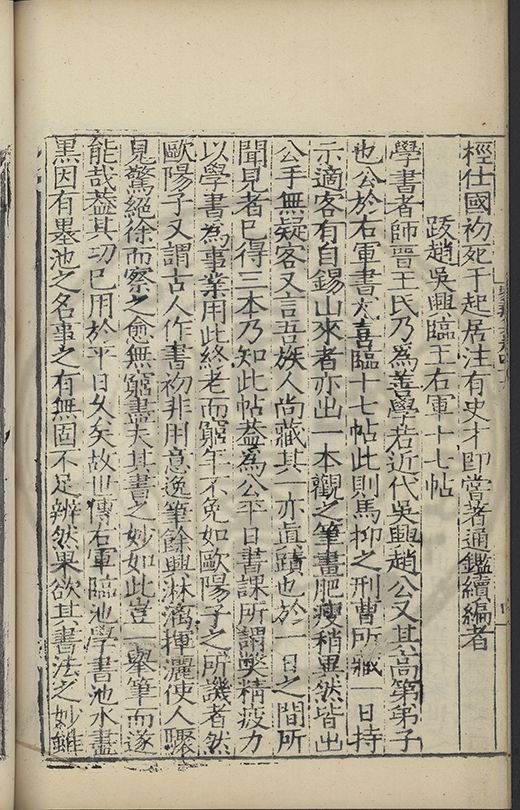 桱仕國初死于起居注有史才即嘗著通鑑續編者
跋趙吳興臨王右軍十七帖
學書者師晉王氏乃為善學若近代吳興趙公又其高第弟子
也公於右軍書尤喜臨十七帖此則馬抑之刑曹所藏一日持
示適客有自錫山來者亦出一本觀之筆畫肥瘦稍異然皆出
公手無疑客又言吾族人尚藏其一亦眞蹟也於一日之間所
聞見者已得三本乃知此帖葢為公平日書課所謂獘精疲力
以學書為事業用此終老而窮年不免如歐陽子之所譏者然
歐陽子又謂古人作書初非用意逸筆餘興淋漓揮灑使人驟
見驚絕徐而察之愈無窮盡夫其書之妙如此豈一舉筆而遂
能哉葢其功已用於平日乆矣故世傳右軍臨池學書池水盡
黒因有墨池之名事之有無固不足辨然果欲其書法之妙雖